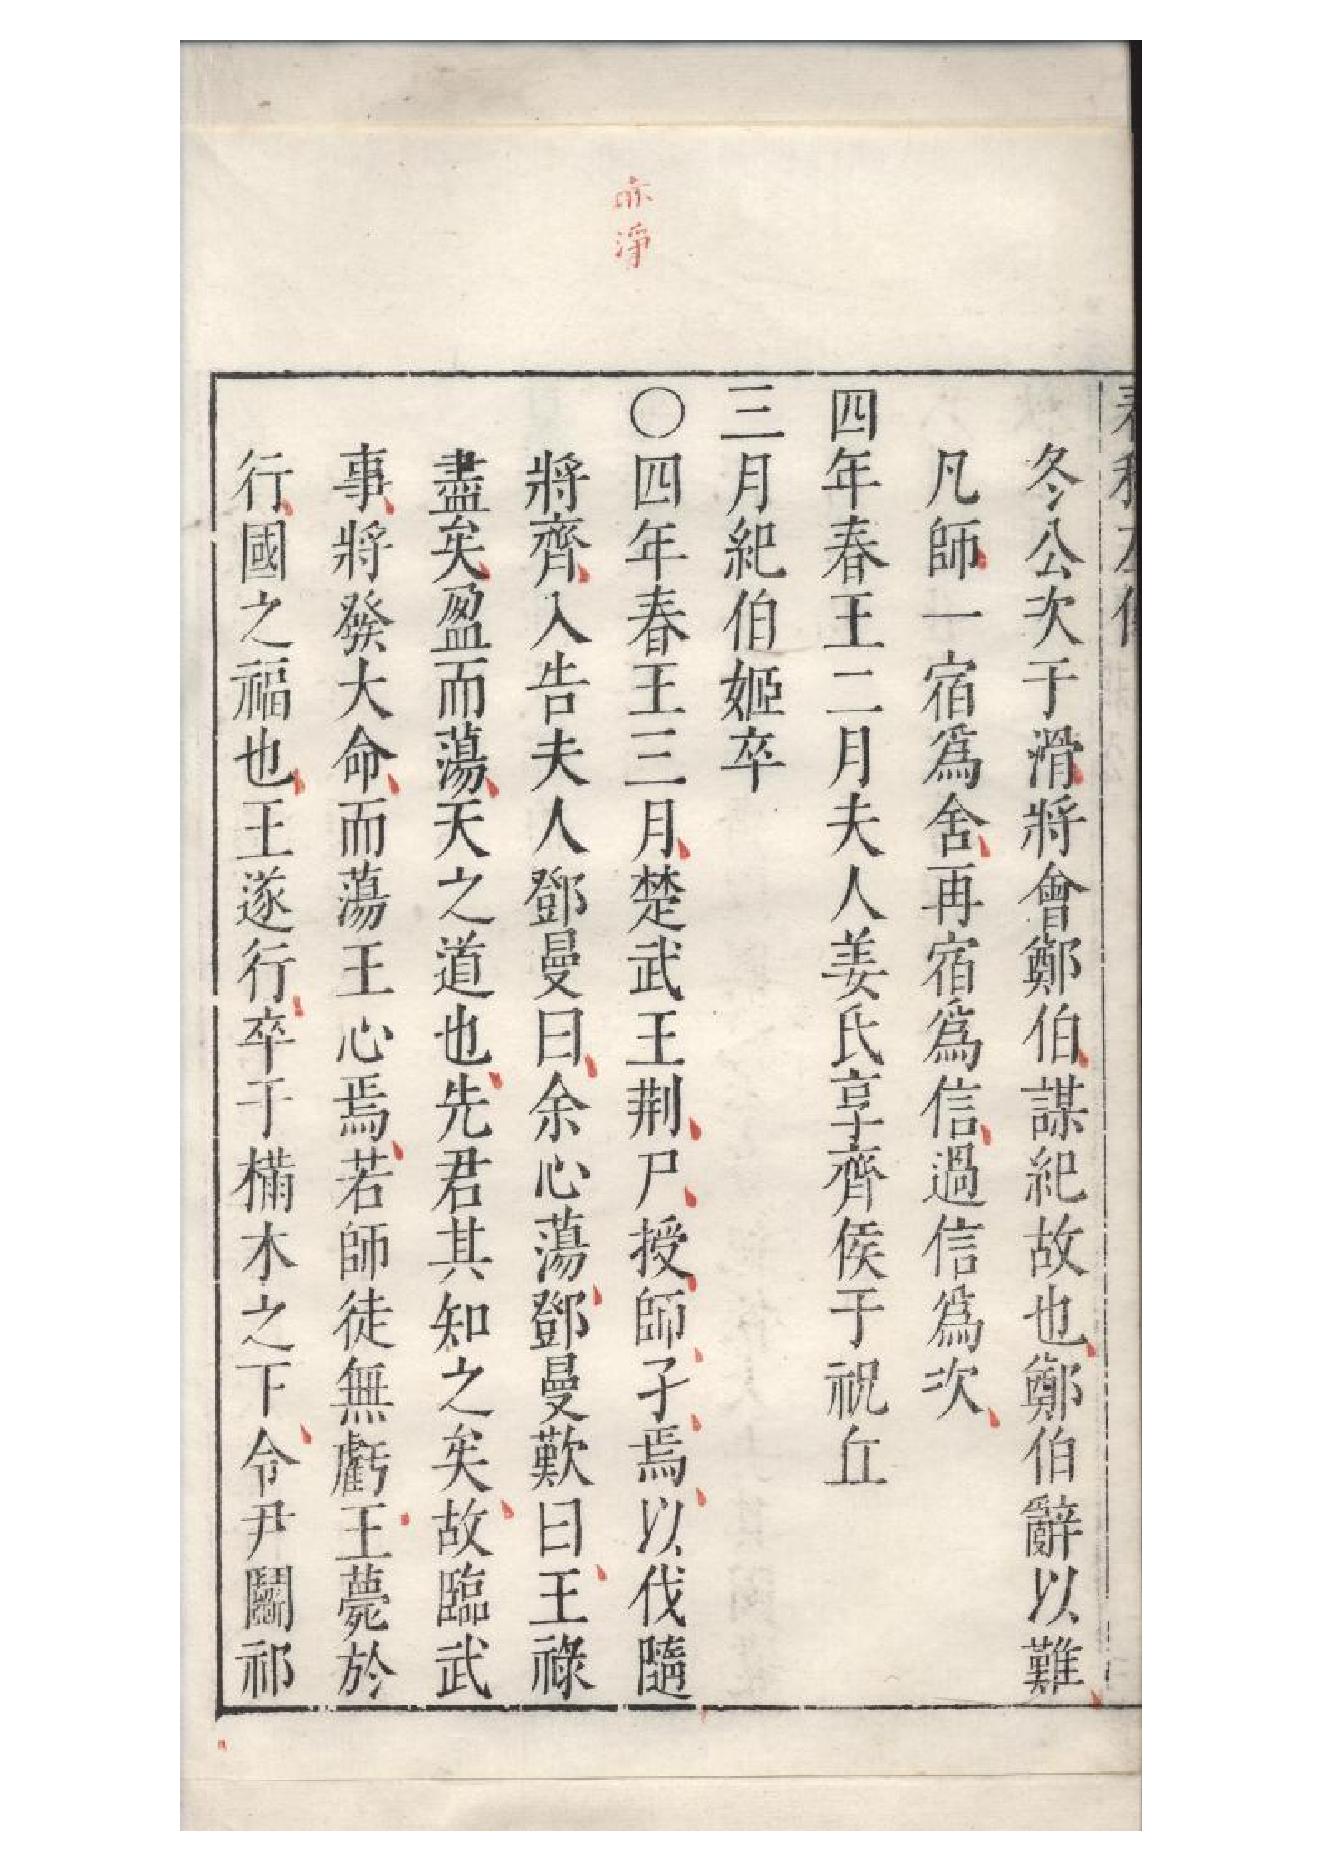 冬公次于滑將會鄭伯謀紀故也鄭伯辭以難
凡師一宿爲舍再宿爲信過信爲次
四年春王二月夫人姜氏享齊侯于祝丘
三月紀伯姬卒
亦淨
○四年春王三月楚武王荆尸授師孑焉以伐隨
將齊入告夫人鄧曼曰余心蕩鄧曼歎曰王祿
盡矣盈而蕩天之道也先君其知之矣故臨武
事將發大命而蕩王心焉若師徒無虧王薨於
行國之福也王遂行卒于樠木之下令尹鬬祁